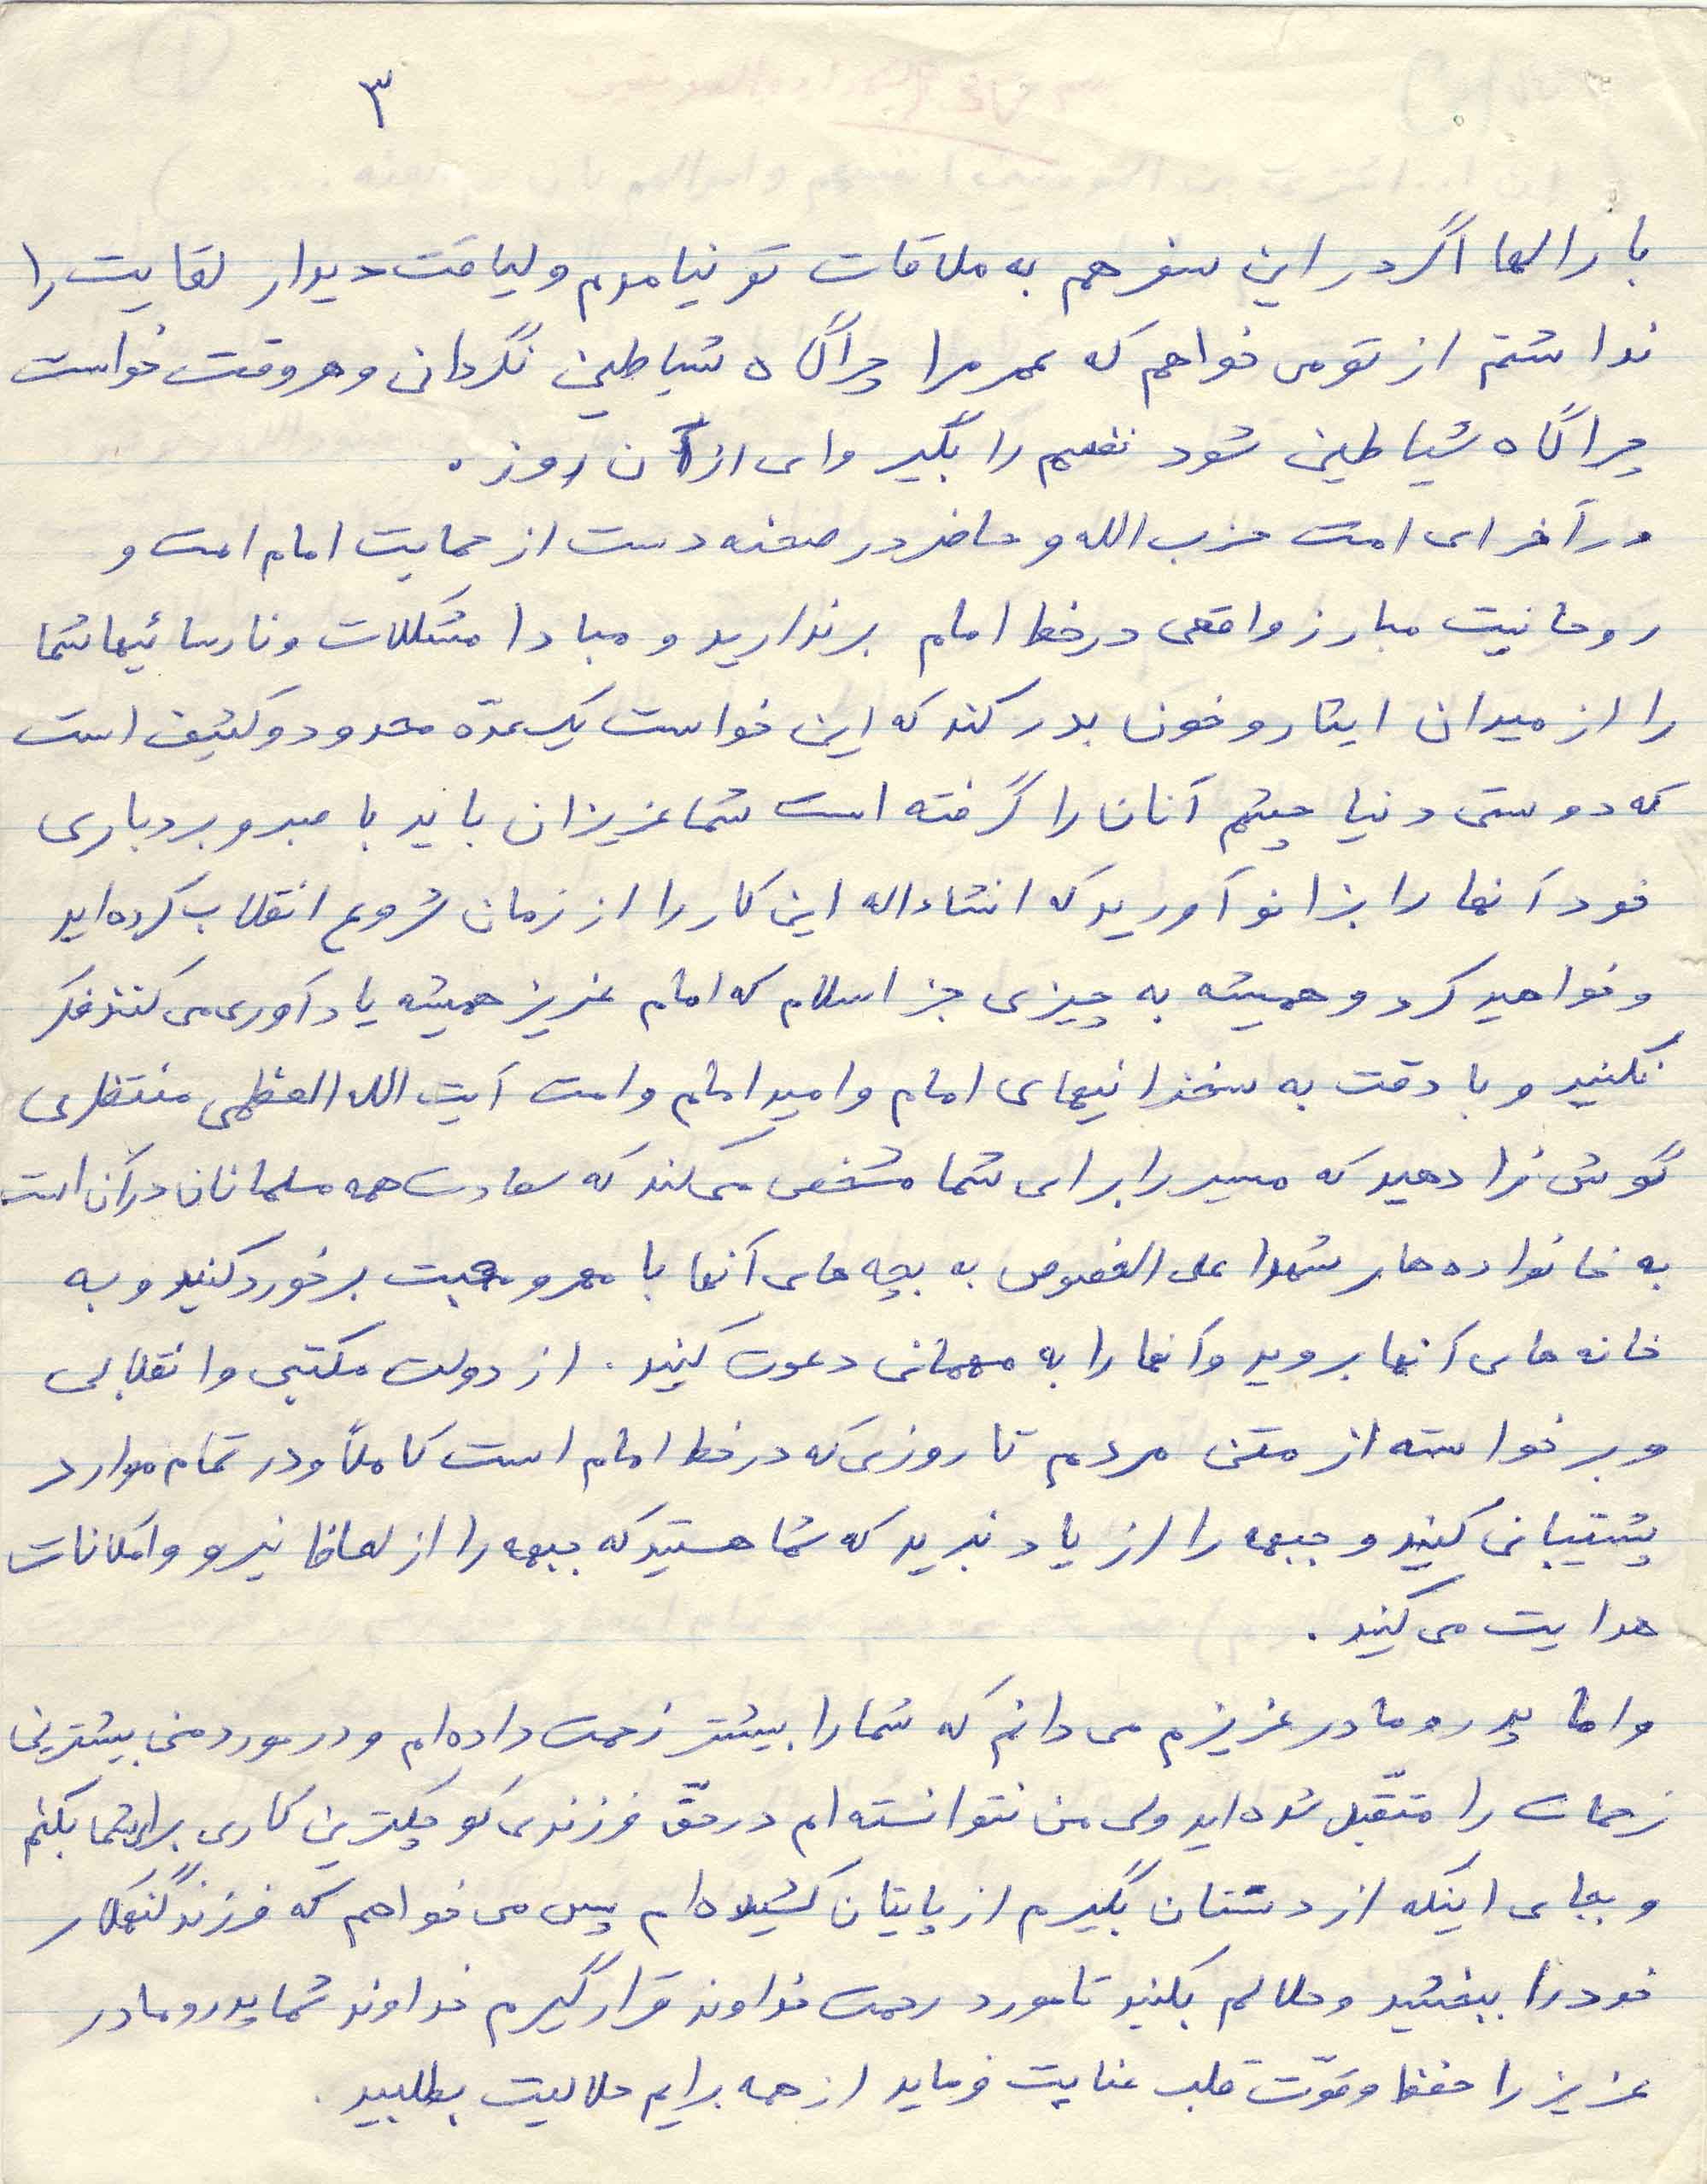 ۳
بارالها اگر در این سفر هم به ملاقات تو نیامدم و لیاقت دیدار لقایت را
نداشتم از تو می خواهم که عمر مرا چراگاه شیاطین نگردانی و هر وقت خواست
چراگاه شیاطین شود نفسم را بگیر وای از آن روز .
در آخر ای امت حزب الله و حاضر در صحنه دست از حمایت امام امت و
روحانیت مبارز واقعی در خط امام برندارید و مبادا مشکلات و نارسائیها شما
را از میدان ایثار و خون بدر کند که این خواست یک عدّه محدود و کثیف است
که دوستی دنیا چشم آنان را گرفته است شما عزیزان باید با صبر و بردباری
خود آنها را بزانو آورید که انشاءاله این کار را از زمان شروع انقلاب کرده اید
و خواهید کرد و همیشه به چیزی جز اسلام که امام عزیز همیشه یادآوری می کنند فکر
نکنید و با دقت به سخنرانیهای امام و امید امام و امت آیت الله العظمی منتظری
گوش فرا دهید که مسیر را برای شما مشخص می کند که سعادت همه مسلمانان در آن است
به خانواده های شهدا علی الخصوص به بچه های آنها با مهر و محبت برخورد کنید و به
خانه های آنها بروید و آنها را به مهمانی دعوت کنید . از دولت مکتبی و انقلابی
و برخواسته از متن مردم تا روزی که در خط امام است کاملاً و در تمام موارد
پشتیبانی کنید و جبهه را از یاد نبرید که شما هستید که جبهه را از لحاظ نیرو و امکانات
هدایت می کنید .
و اما پدر و مادر عزیزم می دانم که شما را بیشتر زحمت داده ام و در مورد من بیشترین
زحمات را متقبّل شده اید ولی من نتوانسته ام در حقّ فرزندی کوچکترین کاری برای شما بکنم
و بجای اینکه از دستتان بگیرم از پایتان کشیده ام پس می خواهم که فرزند گنهکار
خود را ببخشید و حلالم بکنید تا مورد رحمت خداوند قرار گیرم خداوند شما پدر و مادر
عزیز را حفظ و قوّت قلب عنایت فرماید از همه برایم حلالیت بطلبید .